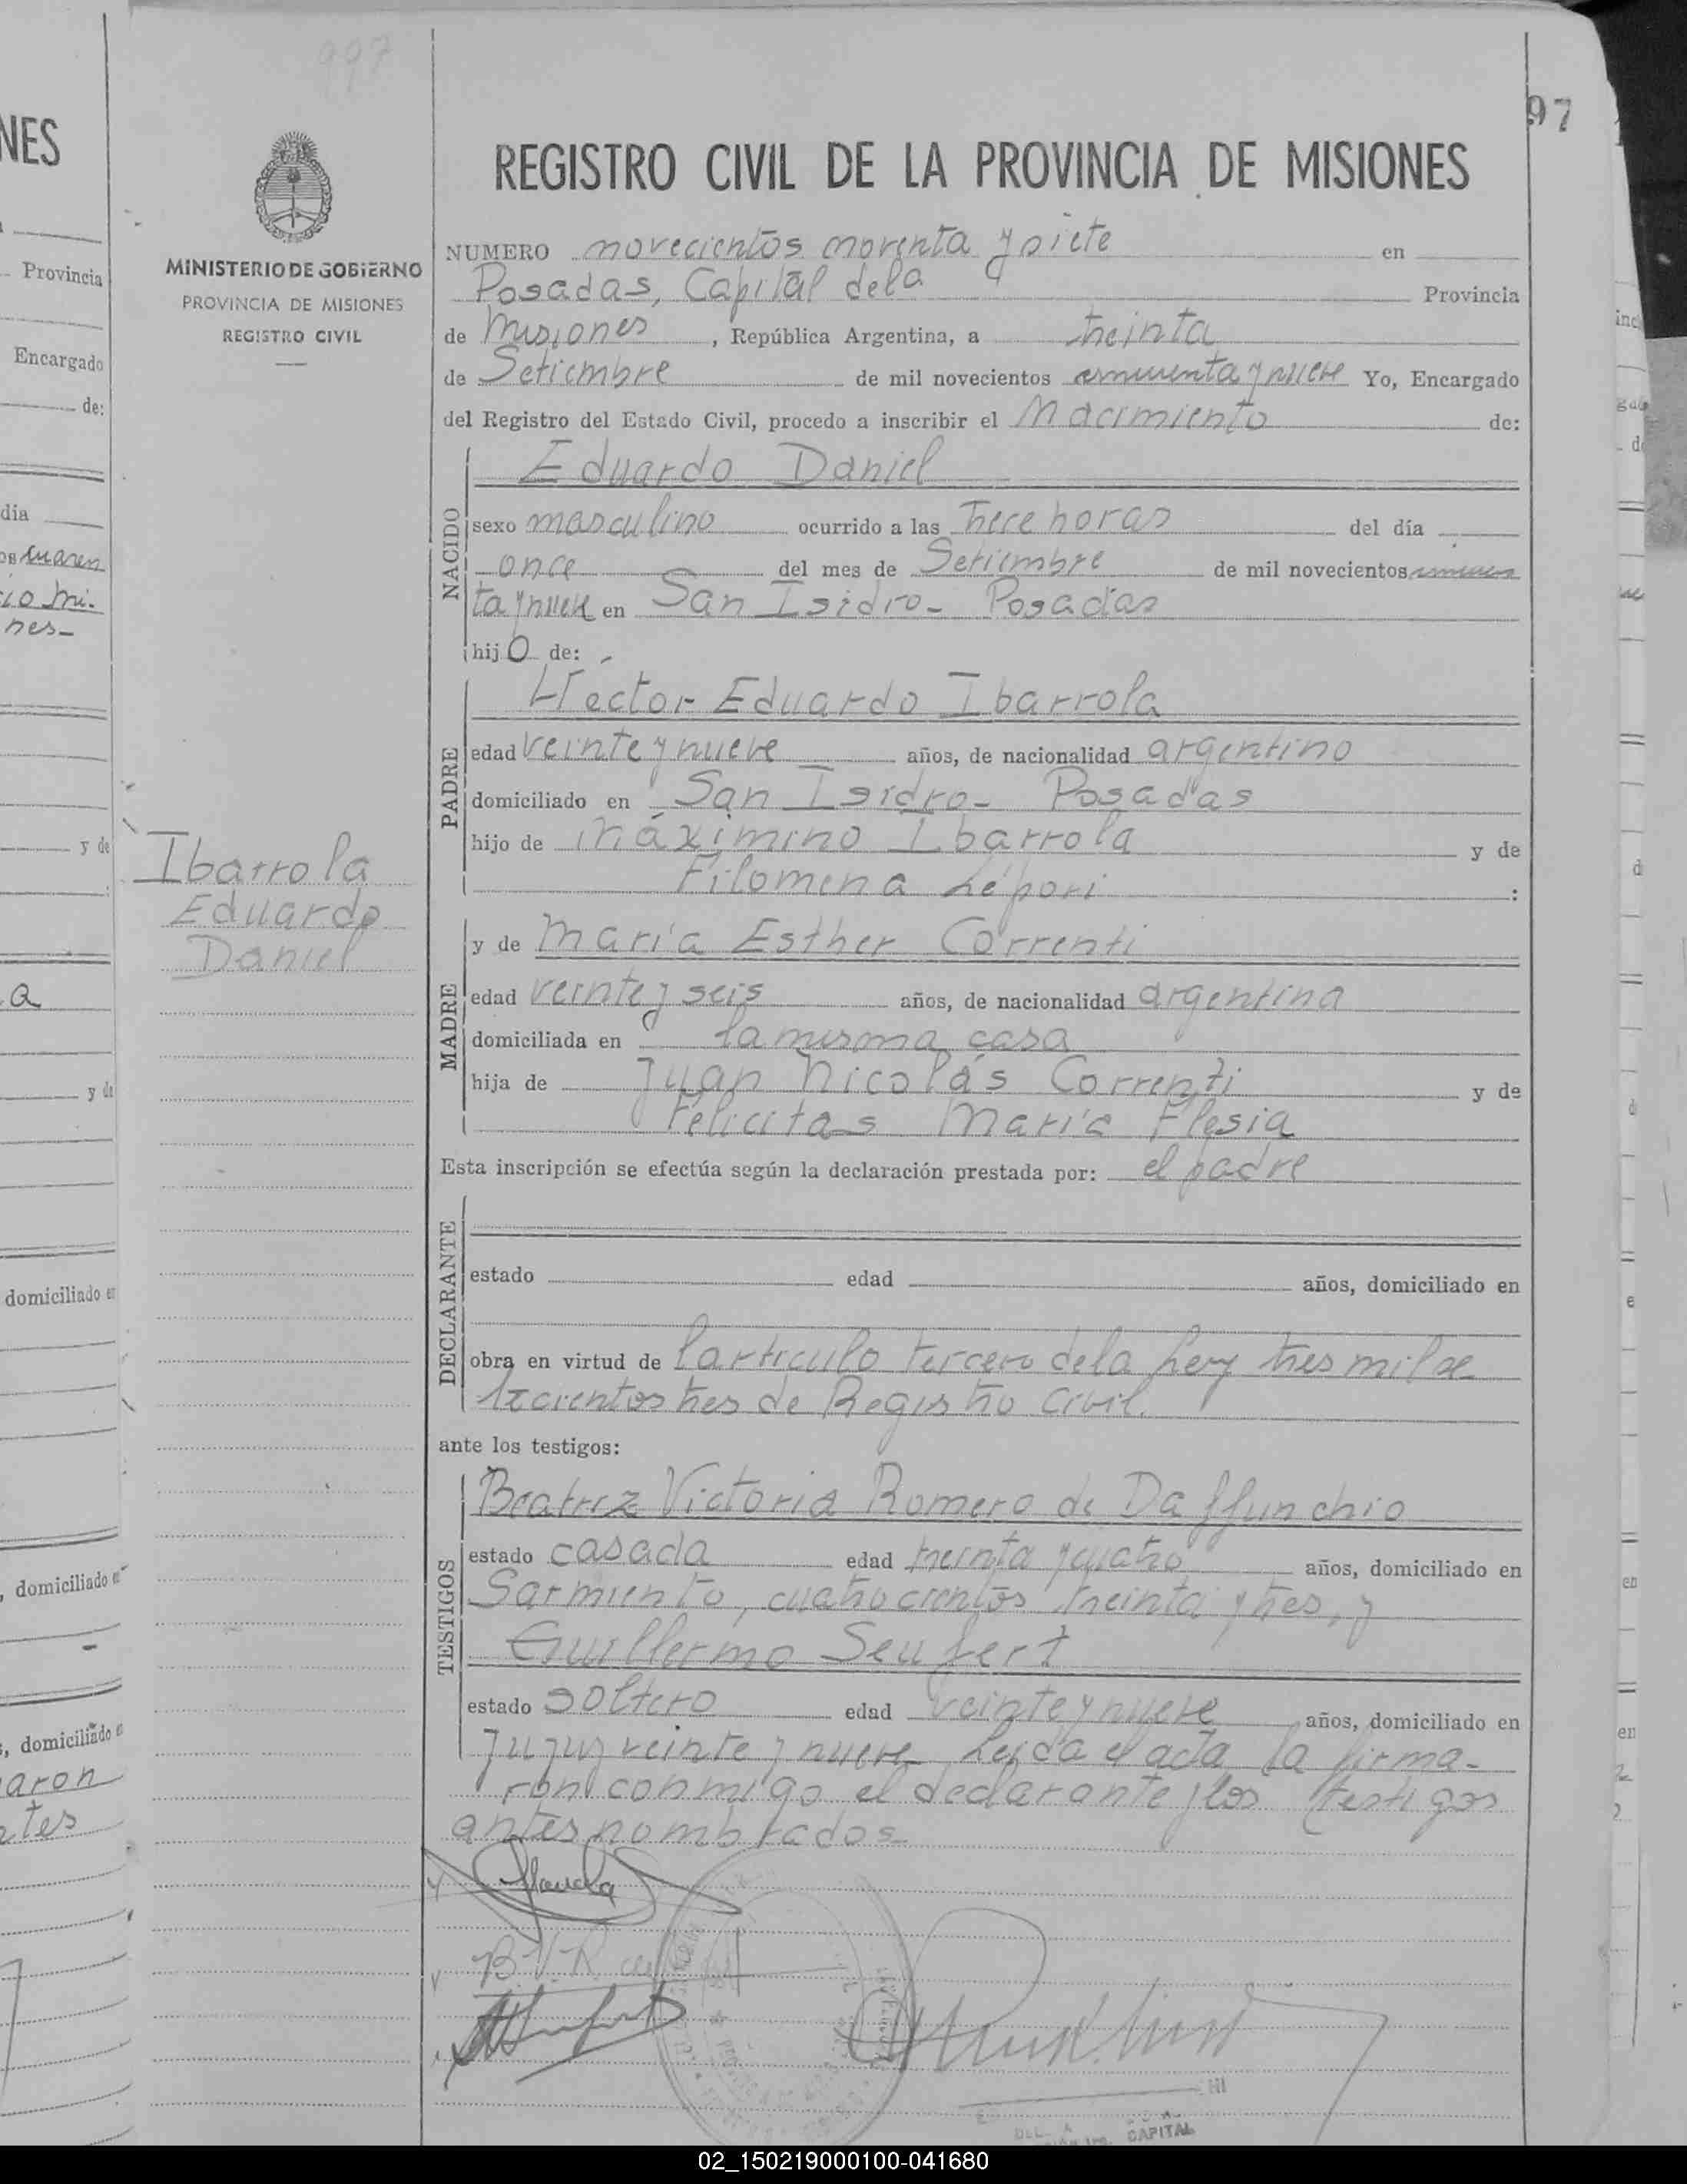 997
97
NES
REGISTRO CIVIL DE LA PROVINCIA DE MISIONES
MINISTERIO DE GOBIERNO
PROVINCIA DE MISIONES
REGISTRO CIVIL
NUMERO novecientos noventa y siete en
Posadas, Capital de la Provincia
de Misiones, República Argentina, a treinta
de Setiembre de mil novecientos cincuenta y nueve Yo, Encargado
del Registro del Estado Civil, procedo a inscribir el Nacimiento de:
NACIDO
Eduardo Daniel
sexo masculino ocurrido a las trece horas del día
once del mes de Setiembre de mil novecientos cincuen
ta y nueve en San Isidro- Posadas
hijo de:
PADRE
Hector Eduardo Ibarrola
edad veinte y nueve años, de nacionalidad argentino
domiciliado en San Isidro- Posadas
hijo de Máximino Ibarrola y de
Filomena Lépori :
Ibarrola
Eduardo
Daniel
MADRE
y de María Esther Correnti
edad veinte y seis años, de nacionalidad argentina
domiciliada en la misma casa
hija de Juan Nicolás Correnti y de
Felicitas María Flesia
Esta inscripción se efectúa según la declaración prestada por: el padre
DECLARANTE
estado edad años, domiciliado en
obra en virtud de l'artículo tercero de la Ley tres mil se
tecientos tres de Registro Civil.
ante los testigos:
TESTIGOS
Beatriz Victoria Romero de Daffunchio
estado casada edad treinta y cuatro años, domiciliado en
Sarmiento, cuatrocientos treinta y tres, y
Guillermo Seufert
estado soltero edad veinte y nueve años, domiciliado en
Jujuy veinte y nueve Leída el acta la firma-
ron conmigo el declarante y los testigos
antes nombrados-
B.V.R. de
CAPITAL
Provincia
Encargado
de:
día
cuaren
nes-
y de
a
y de
domiciliado en
, domiciliado en
, domiciliado en
aron
tes
02_150219000100-041680